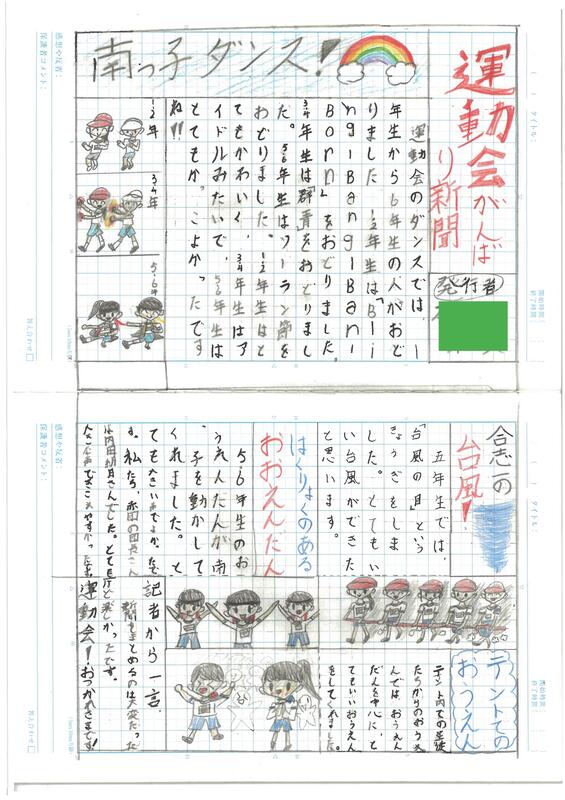 運動会がんば
り新聞
発行者
南っ子ダンス!
運動会のダンスでは、一
年生から6年生の人がおど
りました。1・2年生は「Bli
ng-Bang-Bang-
Born」をおどりました。
3・4年生は「群青」をおどりまし
た。5・6年生はソーラン節を
おどりました。1・2年生はと
てもかわいく、3・4年生はア
イドルみたいで、5・6年生は
とてもかっこよかったです
ね!!
1・2年
3・4年
5・6年
合志一の
台風!
五年生では、
「台風の目」という
きょうぎをしま
した。とてもい
い台風ができた
と思います。
はくりょくのある
おおえんだん
5・6年生のお
うえんだんが南
っ子を動かして
くれました。と
ても大きい声で
テントでの
おうえん
テント内での生徒
たちからのおうえ
んでは、おうえん
だんを中心に、と
てもいいおうえん
をしてくれました。
記者から一言
新聞をまとめるのは大変だった
けど楽しかったです。
運動会!おつかれさまです!
タイトル:
開始時間:
終了時間:
感想や反省:
保護者コメント:
答え合わせ
タイトル:
開始時間:
終了時間:
感想や反省:
保護者コメント:
答え合わせ